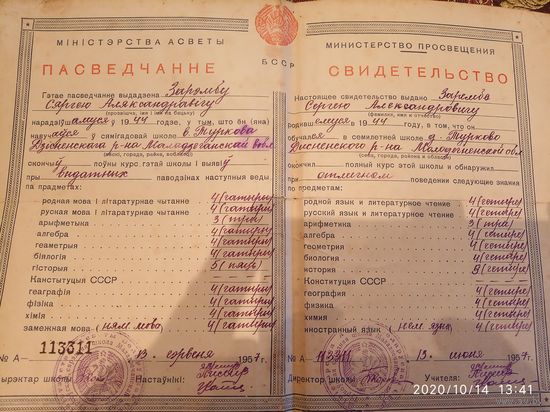 МІНІСТЭРСТВА АСВЕТЫ
БССР
ПАСВЕДЧАННЕ
Гэтае пасведчанне выдадзена Зарэмбу
Сяргею Аляксандравічу
(прозвішча, імя і імя па бацьку)
1944 годзе, у тым, што ён
навучаўся ў сямігадовай школе в. Туркова
Дзісенскага р-на Маладзечанскай вобл.
скончыў поўны курс гэтай школы і выявіў
выдатных паводзінах наступныя веды
па прадметах:
родная мова і літаратурнае чытанне 4 (чатыры)
руская мова і літаратурнае чытанне 4 (чатыры)
арыфметыка 3 (тры)
алгебра 4 (чатыры)
геаметрыя 4 (чатыры)
біялогія 4 (чатыры)
гісторыя 5 (пяць)
Канстытуцыя СССР
геаграфія 4 (чатыры)
фізіка 4 (чатыры)
хімія 4 (чатыры)
замежная мова (ням мова) 4 (чатыры)
№ А— 113311 13 1957
Дырэктар школы
Настаўнікі:
МИНИСТЕРСТВО ПРОСВЕЩЕНИЯ
СВИДЕТЕЛЬСТВО
Настоящее свидетельство выдано Зарембо
Сергею Александровичу
(фамилия, имя и отчество)
1944 году, в том, что он
обучался в семилетней школе д. Турково
Дисненского р-на Молодечненской обл
(село, город, район и область)
окончил полный курс этой школы и обнаружил
отличном поведении следующие знания
по предметам:
родной язык и литературное чтение 4 (четыре)
русский язык и литературное чтение 4 (четыре)
арифметика 3 (три)
алгебра 4 (четыре)
геометрия 4 (четыре)
биология 4 (четыре)
история
Конституция СССР
география 4 (четыре)
физика 4 (четыре)
химия 4 (четыре)
иностранный язык (нем язык) 4 (четыре)
№ А— 113311 13 июня 1957
Директор школы
Учителя:
2020/10/14 13:41